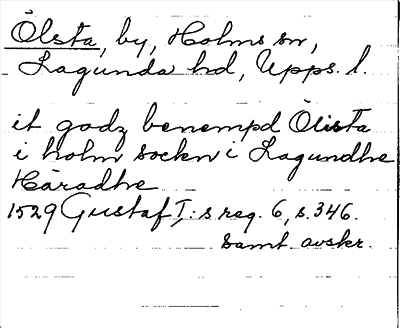 Ölsta, by, Holms sn,
Lagunda hd, Upps. l.
it godz benempd Ölista
i holm sockn i Lagundhe
Häradhe
1529 Gustaf I:s reg. 6, s. 346.
samt. avskr.